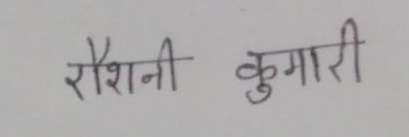 रौशनी कुमारी